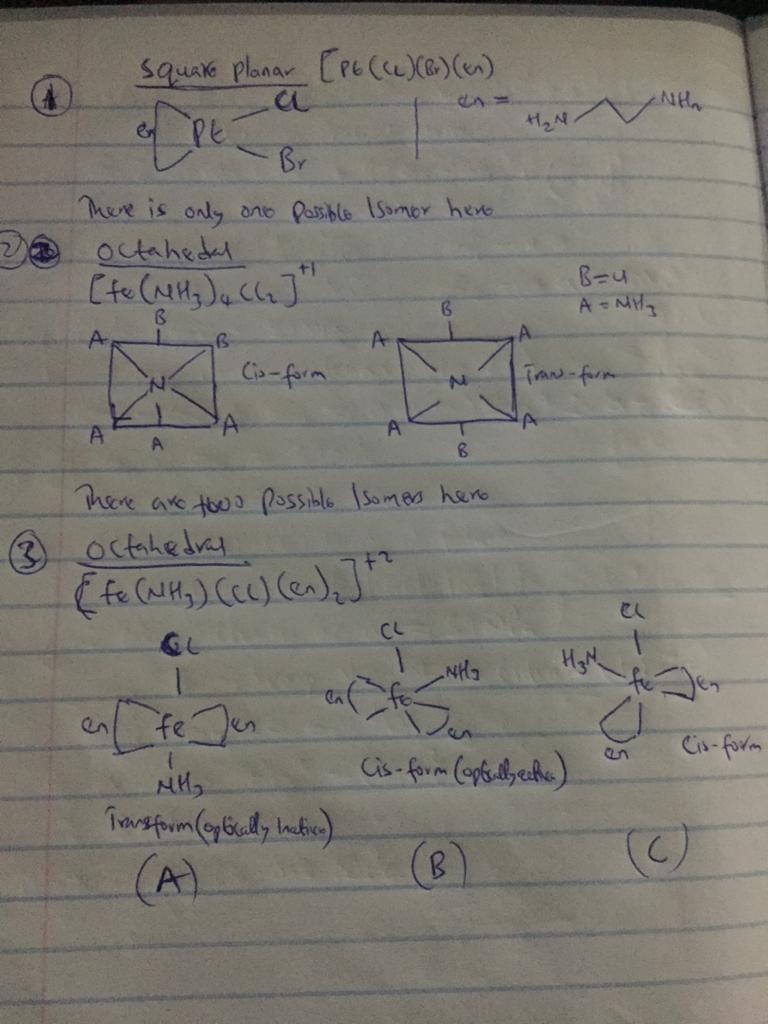 ① Square planar [Pt(Cl)(Br)(en)
en Pt Cl Br
en = H₂N NH₂
There is only one possible Isomer here
2) Octahedal
[Fe(NH₃)₄Cl₂]⁺¹
B=Cl
A = NH₃
A B B M A A A Cis-form
A B A M A B A Trans-form
There are two possible Isomers here
③ Octahedral
[Fe(NH₃)(Cl)(en)₂]⁺²
Cl en Fe en NH₃
Cl en Fe NH₃ en
Cl H₃N Fe en en
Cis-form (optically active)
Cis-form
Transform (optically Inactive)
(A) (B) (C)